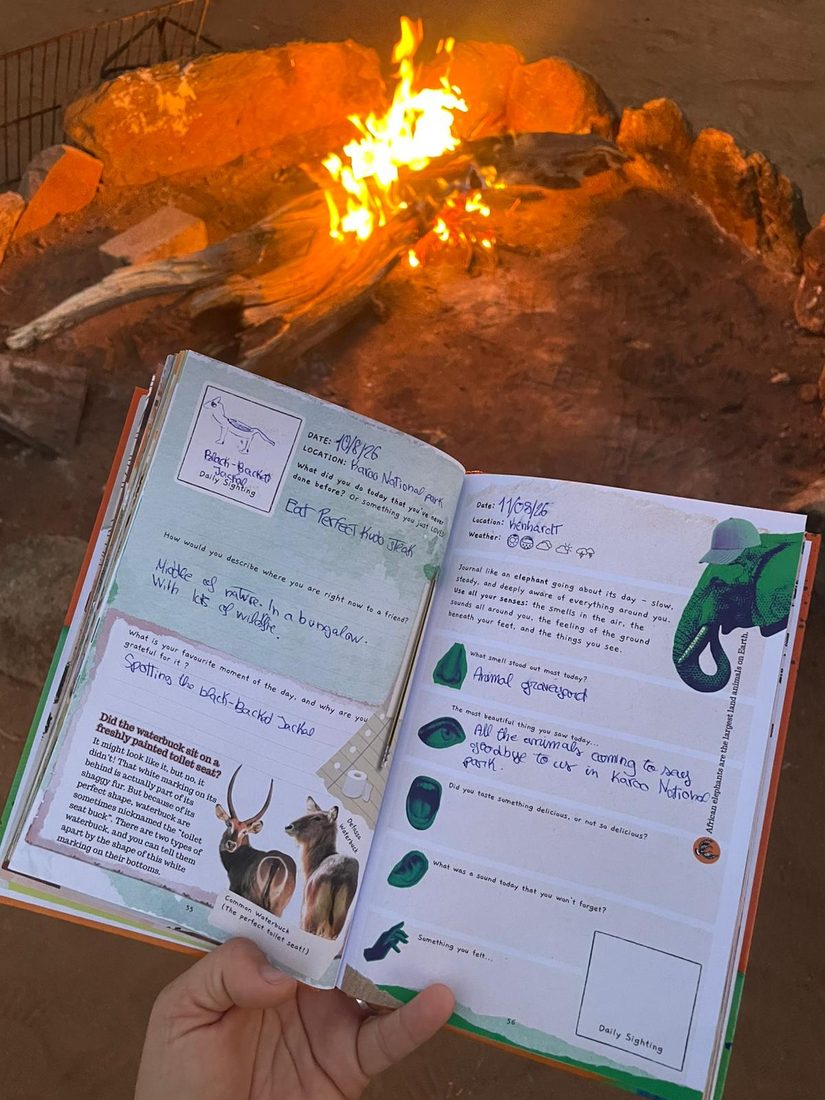 Black-Backed
Jackal
Daily Sighting
DATE: 10/8/26
LOCATION: Karoo National park
What did you do today that you've never
done before? Or something you just LOVED
Eat Perfect Kudo Steak
How would you describe where you are right now to a friend?
Middle of nature. In a bungalow.
With lots of wildlife.
What is your favourite moment of the day, and why are you
grateful for it ?
Spotting the black-Backed Jackal
Did the waterbuck sit on a
freshly painted toilet seat?
It might look like it, but no, it
didn't! That white marking on its
behind is actually part of its
shaggy fur. But because of its
perfect shape, waterbuck are
sometimes nicknamed the "toilet
seat buck". There are two types of
waterbuck, and you can tell them
apart by the shape of this white
marking on their bottoms.
Defassa
Waterbuck
Common Waterbuck
(The perfect toilet seat!)
55
Date: 11/08/26
Location: Kenhardt
Weather:
Journal like an elephant going about its day – slow,
steady, and deeply aware of everything around you.
Use all your senses: the smells in the air, the
sounds all around you, the feeling of the ground
beneath your feet, and the things you see.
What smell stood out most today?
Animal graveyard
The most beautiful thing you saw today...
All the animals coming to say
goodbye to us in Karoo National
park.
Did you taste something delicious, or not so delicious?
What was a sound today that you won't forget?
Something you felt...
Daily Sighting
African elephants are the largest land animals on Earth.
56